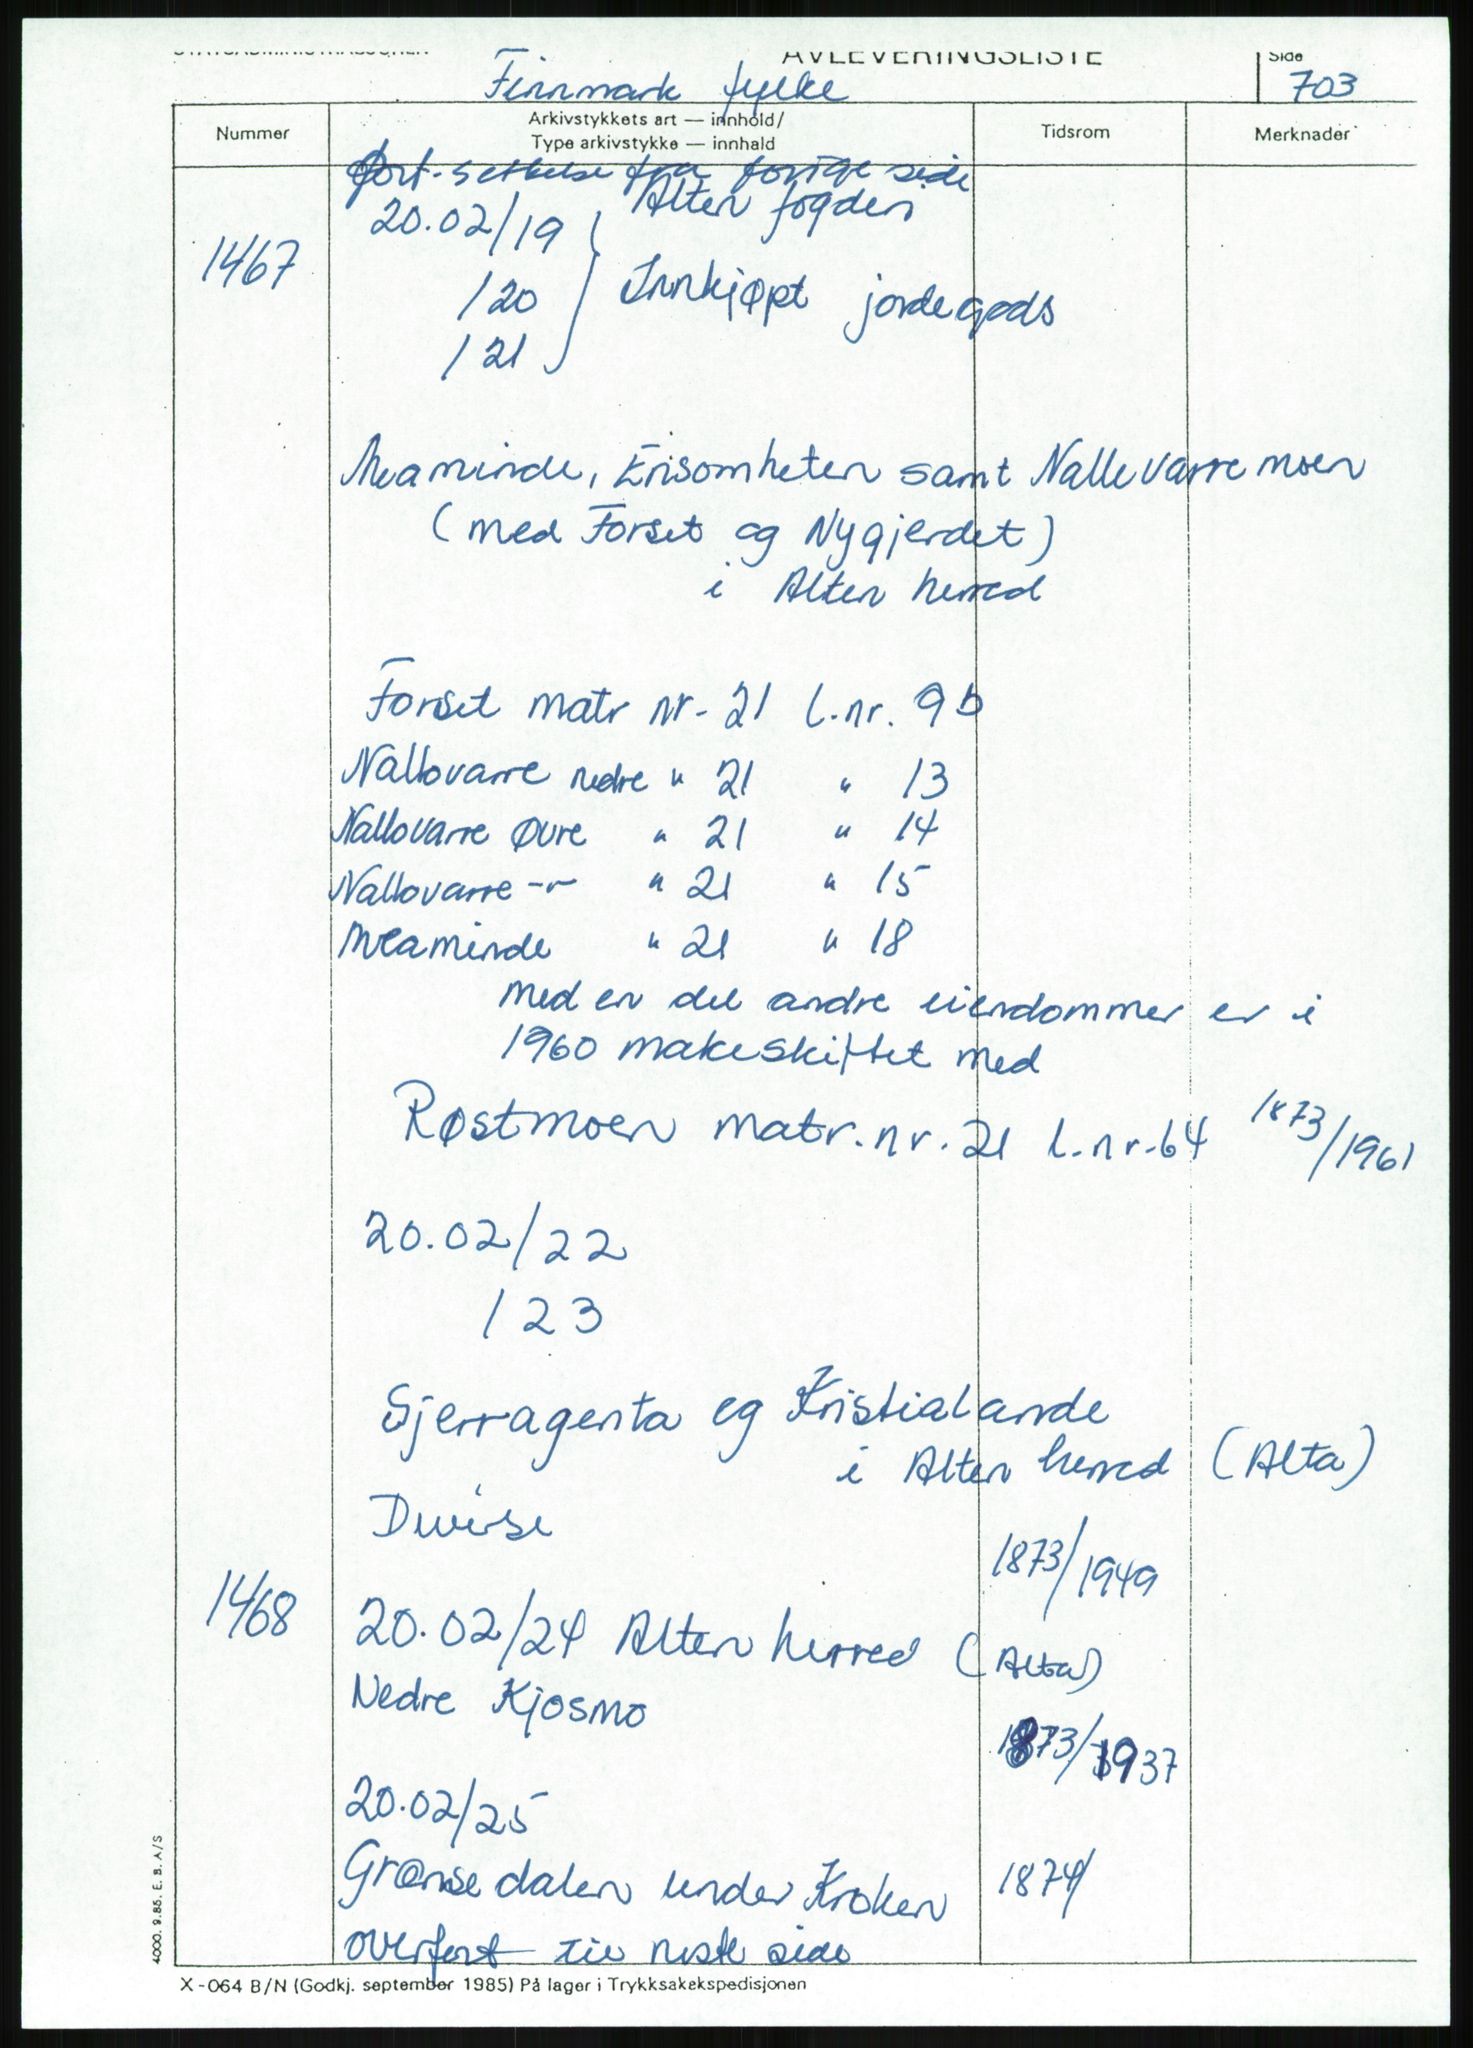 STATSADMINISTRASJONEN AVLEVERINGSLISTE Side
Finnmark fylke 703
Nummer Arkivstykkets art — innhold/ Tidsrom Merknader
Type arkivstykke — innhald
fort-settelse fra forrige side
20.02/19 Alten fogderi
1467
/20 Innkjøpt jordegods
/21
Meaminde, Ensomheten samt Nallevarre moen
(med Forset og Nygjerdet)
i Alten herred
Forset matr nr. 21 l.nr. 9b
Nallovarre nedre " 21 " 13
Nallovarre Øvre " 21 " 14
Nallovarre -"- " 21 " 15
Meaminde " 21 " 18
med en del andre eiendommer er i
1960 makeskiftet med
Røstmoen matr.nr. 21 l.nr. 64 1873/1961
20.02/22
/23
Sjerragenta og Kristialande
i Alten herred (Alta)
Diverse 1873/1949
1468 20.02/24 Alten herred (Alta)
Nedre Kjosmo 1873/1937
20.02/25
Grønsedalen under Kroken 1874/
overført til neste side
X-064 B/N (Godkj. september 1985) På lager i Trykksakekspedisjonen
4000. 9.85. E. B. A/S